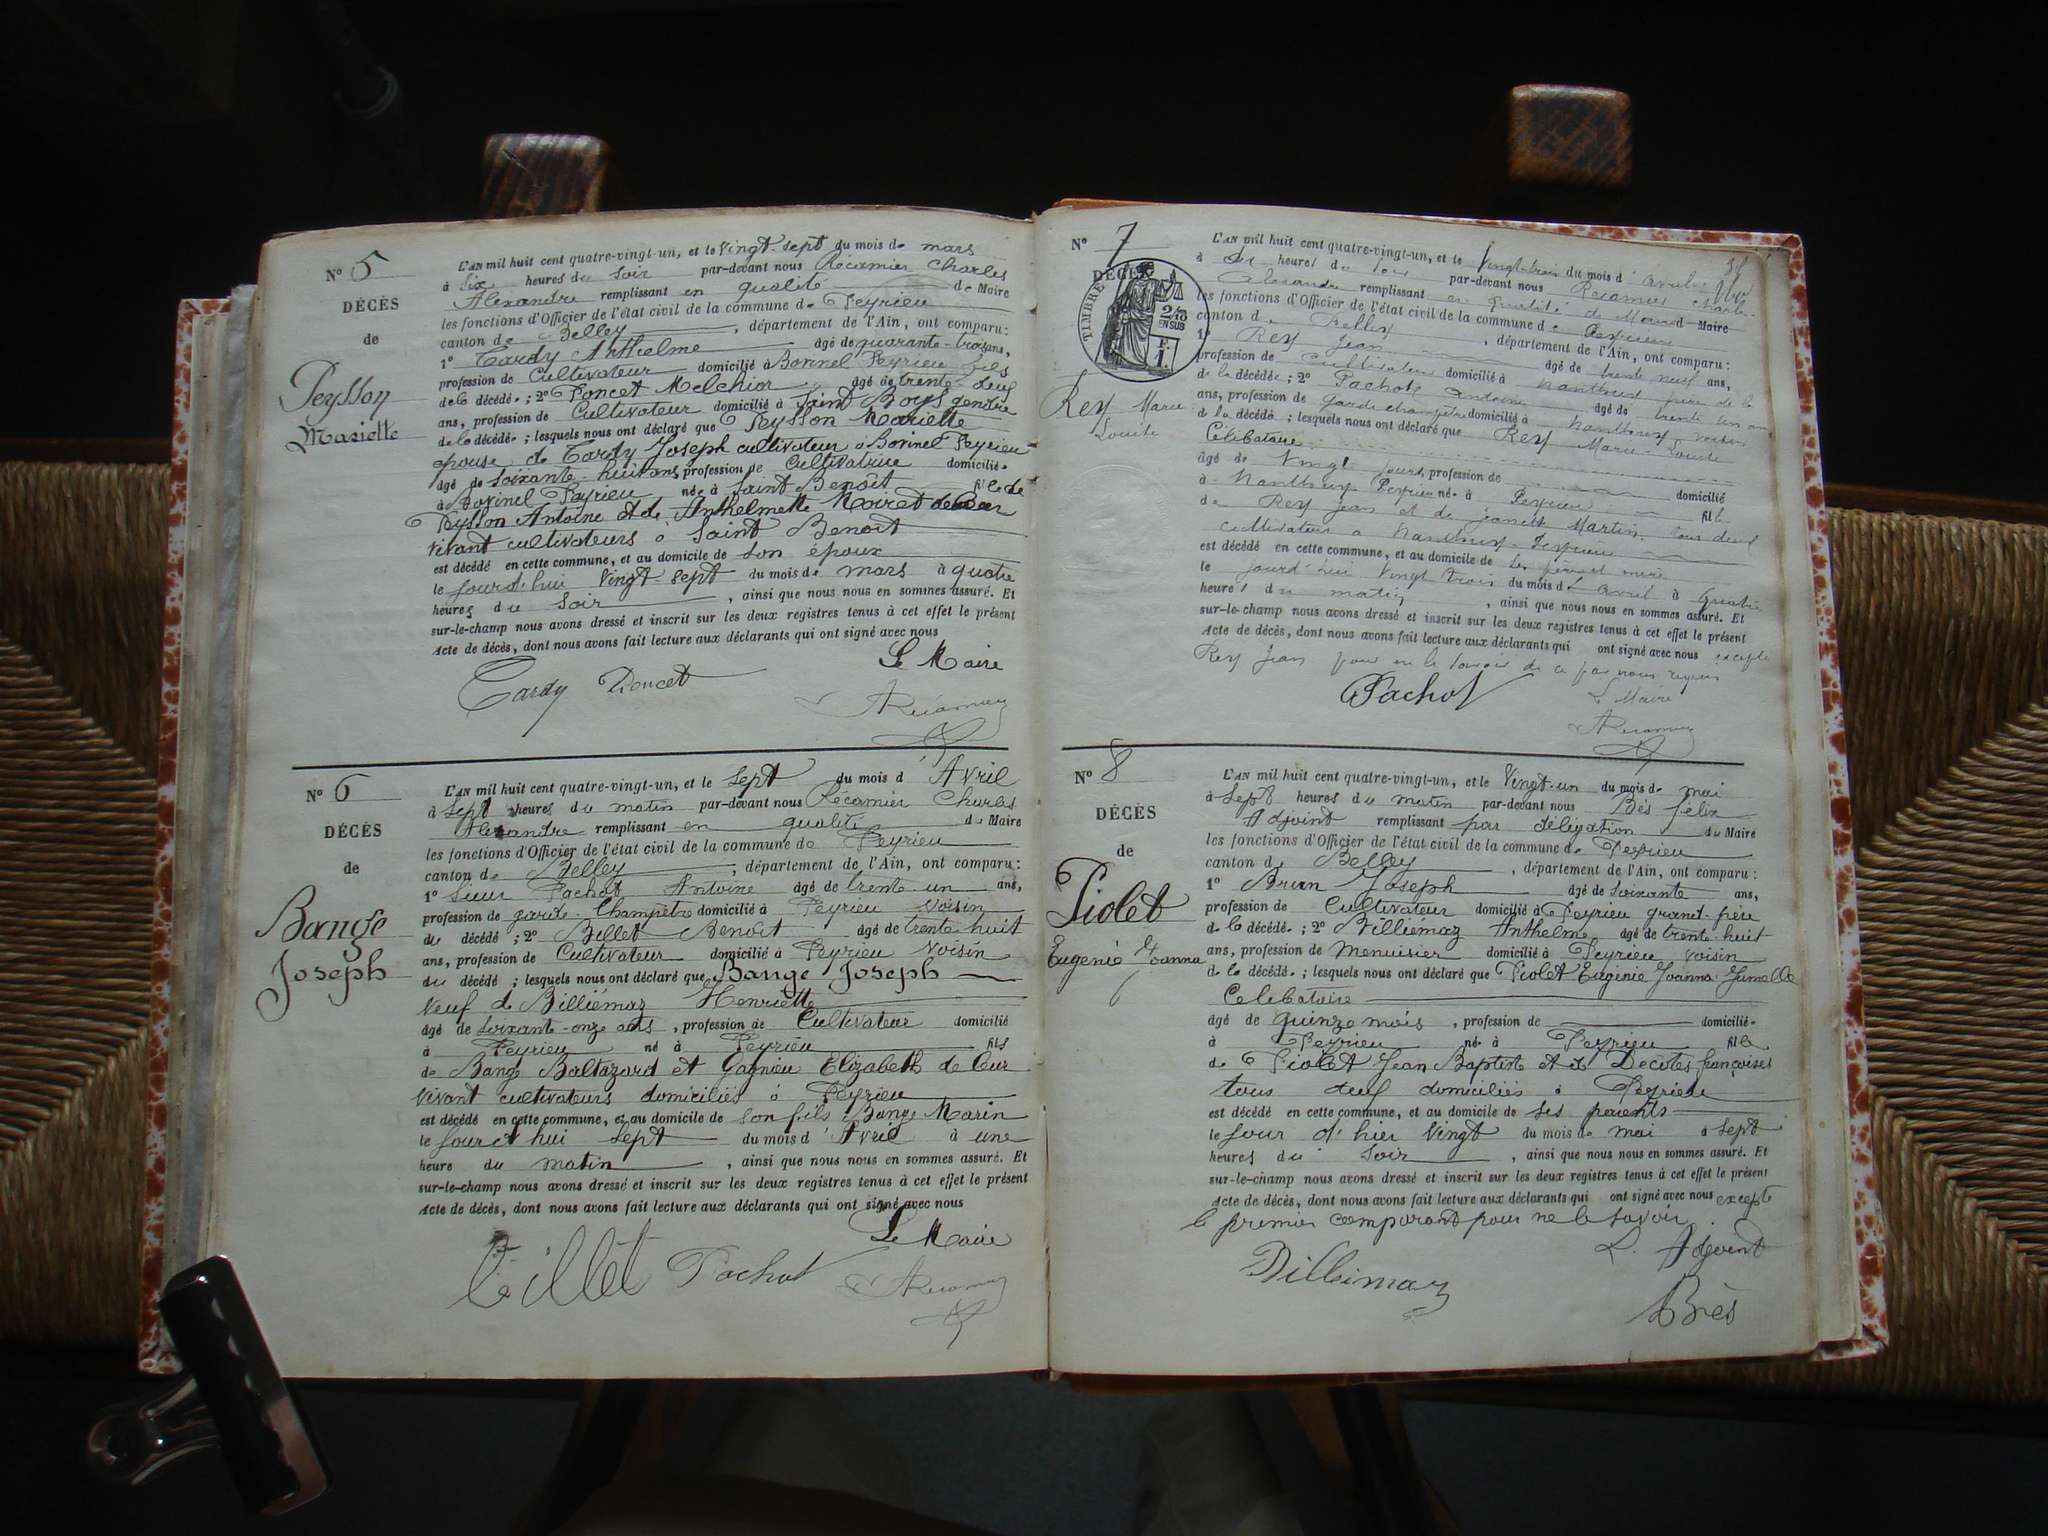 N° 5
DÉCÈS
de
Peysson
Mariette
L'AN mil huit cent quatre-vingt-un, et le Vingt-sept du mois de mars
à six heures du soir par-devant nous Récamier Charles
Alexandre remplissant en qualité de Maire
les fonctions d'Officier de l'état civil de la commune de Peyrieu
canton de Belley, département de l'Ain, ont comparu:
1° Tardy Anthelme âgé de quarante-trois ans,
profession de Cultivateur domicilié à Bovinel Peyrieu fils
de la décédée; 2° Poncet Melchior âgé de trente-deux
ans, profession de Cultivateur domicilié à Saint Boys gendre
de la décédée; lesquels nous ont déclaré que Peysson Mariette
épouse de Tardy Joseph cultivateur à Bovinel Peyrieu
âgé de soixante-huit ans, profession de Cultivatrice domiciliée
à Bovinel Peyrieu née à Saint Benoît fille de
Peysson Antoine et de Anthelmette Moiret de leur
vivant cultivateurs à Saint Benoît
est décédé en cette commune, et au domicile de son époux
le jourd'hui Vingt-sept du mois de mars à quatre
heures du soir, ainsi que nous nous en sommes assuré. Et
sur-le-champ nous avons dressé et inscrit sur les deux registres tenus à cet effet le présent
Acte de décès, dont nous avons fait lecture aux déclarants qui ont signé avec nous
Le Maire
Tardy Poncet
ARécamier
N° 6
DÉCÈS
de
Bange
Joseph
L'AN mil huit cent quatre-vingt-un, et le sept du mois d'Avril
à sept heures du matin par-devant nous Récamier Charles
Alexandre remplissant en qualité de Maire
les fonctions d'Officier de l'état civil de la commune de Peyrieu
canton de Belley, département de l'Ain, ont comparu:
1° Sieur Pachot Antoine âgé de trente-un ans,
profession de garde-Champêtre domicilié à Peyrieu voisin
du décédé; 2° Billet Benoit âgé de trente-huit
ans, profession de Cultivateur domicilié à Peyrieu voisin
du décédé; lesquels nous ont déclaré que Bange Joseph
Veuf de Billiémaz Henriette
âgé de soixante-onze ans, profession de Cultivateur domicilié
à Peyrieu né à Peyrieu fils
de Bange Baltazard et Gagnieu Elizabeth de leur
vivant cultivateurs domiciliés à Peyrieu
est décédé en cette commune, et au domicile de son fils Bange Marin
le jourd'hui sept du mois d'Avril à une
heure du matin, ainsi que nous nous en sommes assuré. Et
sur-le-champ nous avons dressé et inscrit sur les deux registres tenus à cet effet le présent
Acte de décès, dont nous avons fait lecture aux déclarants qui ont signé avec nous
Le Maire
Billet Pachot
ARécamier
N° 7
DÉCÈS
TIMBRE
2/10
EN SUS
F.
1.
Rey Marie
Louise
L'AN mil huit cent quatre-vingt-un, et le Vingt-trois du mois d'avril
à six heures du soir par-devant nous Récamier Charles
Alexandre remplissant en qualité de Maire de Maire
les fonctions d'Officier de l'état civil de la commune de Peyrieu
canton de Belley, département de l'Ain, ont comparu:
1° Rey Jean âgé de trente neuf ans,
profession de cultivateur domicilié à Nanthuy père de la
de la décédée; 2° Pachot Antoine âgé de trente un ans
ans, profession de garde champêtre domicilié à Nanthuy voisin
de la décédée; lesquels nous ont déclaré que Rey Marie-Louise
Célibataire
âgé de Vingt jours, profession de domicilié
à Nanthuy Peyrieu née à Peyrieu fille
de Rey Jean et de Jeanne Martin tous deux
cultivateurs à Nanthuy-Peyrieu
est décédé en cette commune, et au domicile de ses père et mère
le jourd'hui Vingt trois du mois d'avril à quatre
heures du matin, ainsi que nous nous en sommes assuré. Et
sur-le-champ nous avons dressé et inscrit sur les deux registres tenus à cet effet le présent
Acte de décès, dont nous avons fait lecture aux déclarants qui ont signé avec nous excepté
Rey Jean pour ne le savoir de ce par nous requis
Le Maire
Pachot
ARécamier
N° 8
DÉCÈS
de
Piolet
Eugénie Joanna
L'AN mil huit cent quatre-vingt-un, et le Vingt-un du mois de mai
à sept heures du matin par-devant nous Bès félix
Adjoint remplissant par délégation du Maire
les fonctions d'Officier de l'état civil de la commune de Peyrieu
canton de Belley, département de l'Ain, ont comparu:
1° Brun Joseph âgé de soixante ans,
profession de Cultivateur domicilié à Peyrieu grand-père
de la décédée; 2° Billiemaz Anthelme âgé de trente-huit
ans, profession de menuisier domicilié à Peyrieu voisin
de la décédée; lesquels nous ont déclaré que Piolet Eugénie Joanna Jumelle
Celibataire
âgé de quinze mois, profession de domiciliée
à Peyrieu née à Peyrieu fille
de Piolet Jean Baptiste et de Decotes françoises
tous deux domiciliés à Peyrieu
est décédé en cette commune, et au domicile de ses parents
le jour d'hier Vingt du mois de mai à sept
heures du soir, ainsi que nous nous en sommes assuré. Et
sur-le-champ nous avons dressé et inscrit sur les deux registres tenus à cet effet le présent
Acte de décès, dont nous avons fait lecture aux déclarants qui ont signé avec nous excepté
le premier comparant pour ne le savoir.
L. Adjoint
Billiemaz
Brès